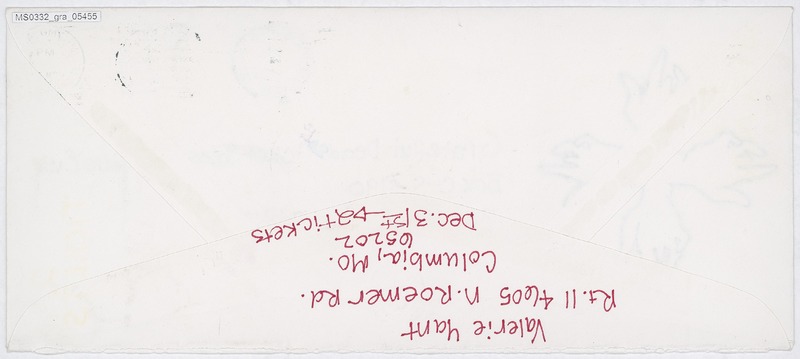 MS0332_gra_05455
Valerie Yant
Rt. 11 4605 N. Roemer Rd.
Columbia, Mo.
65202
Dec. 31st → 2 tickets